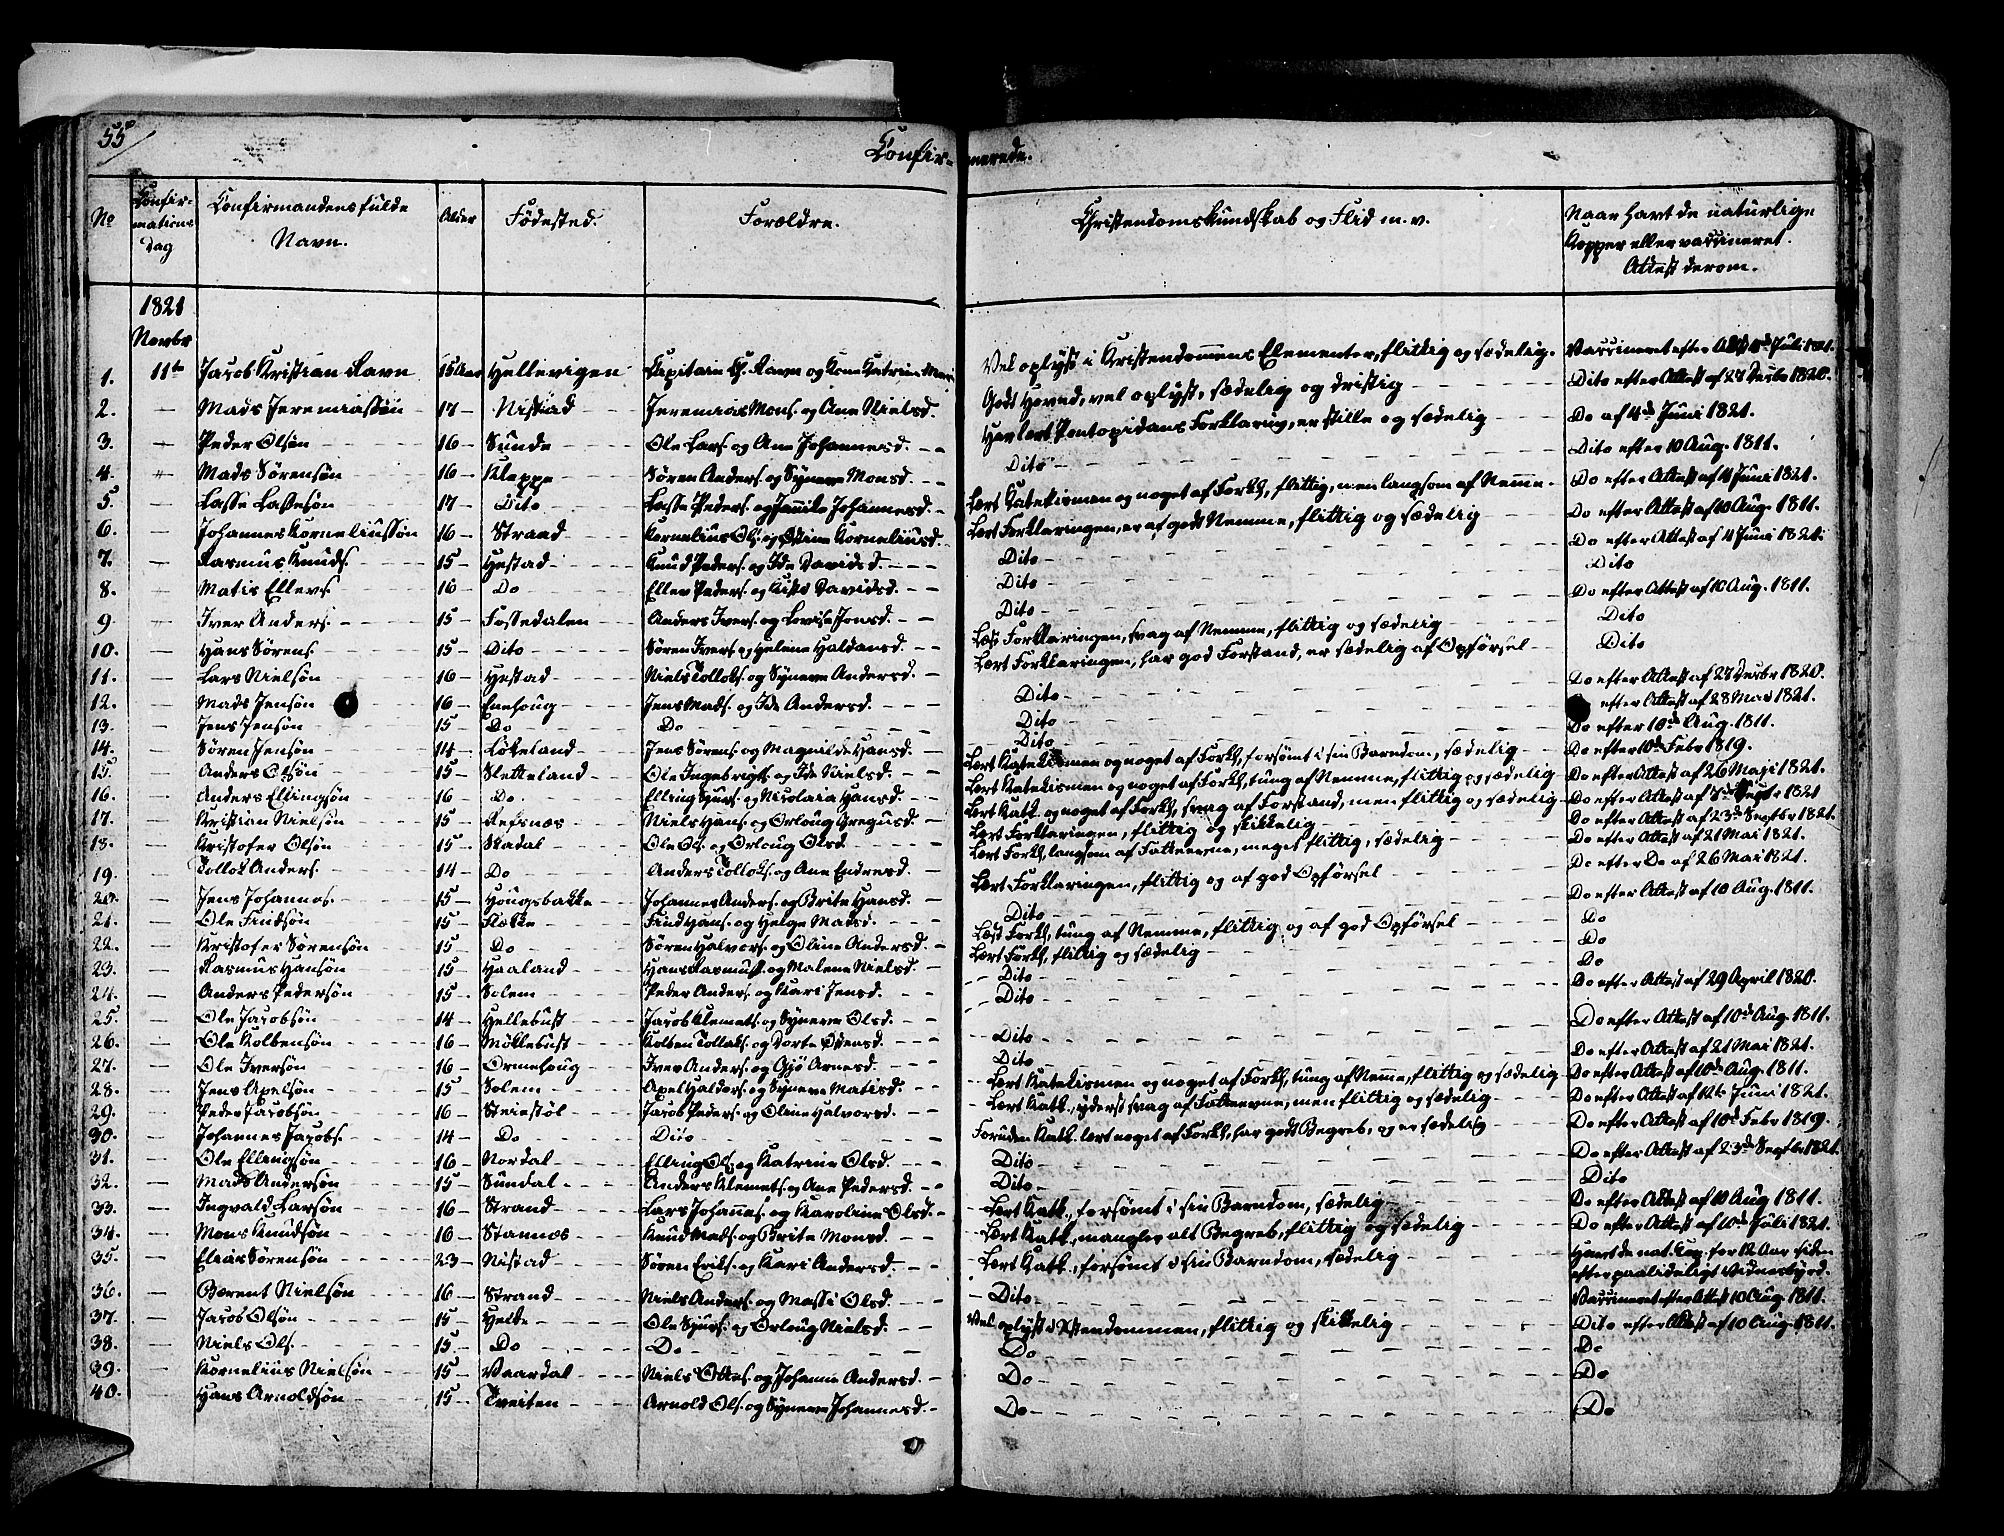 55
Confirmerede.
No
Confirmations Dag
Confirmandens fulde Navn.
Alder
Fødested.
Forældre.
Christendomskundskab og Flid m.v.
Naar havt de naturlige Kopper eller vaccineret. Attest derom.
1821
Novbr
1. 11te Jacob Kristian Ravn 15 Aar Hellevigen Kapitain Ravn og Kone Katrine Vel oplyst i Kristendommens Elementer, flittig og sædelig. Vaccineret efter Juli 1821.
2. — Mads Jeremiassøn 17 — Nistad Jeremias Mons. og Ane Nielsd. Godt Hoved, vel oplyst, sædelig og dristig Dito efter Attest af 27 Decbr 1820.
3. — Peder Olsøn 16 — Sunde Ole Lars. og Ane Johannesd. Har lært Pontopidans Forklaring, er stille og sædelig Do af 4de Juni 1821.
4. — Mads Sørensøn 16 — Kleppe Søren Anders. og Synneve Monsd. Dito Dito efter 10 Aug. 1811.
5. — Lasse Lassesøn 17 — Dito Lasse Peders. og Johannesd. Lært Katekismen og noget af Forkl., flittig, men langsom af Nemme Do efter Attest af 4 Juni 1821.
6. — Johannes Korneliussøn 16 — Strand Kornelius Ols. og Korneliusd. Lært Forklaringen, er af godt Nemme, flittig og sædelig Do efter Attest af 10 Aug. 1811.
7. — Rasmus Knuds. 15 — Hestad Knud Peders. og Ide Davidsd. Dito Do efter Attest af 4 Juni 1821
8. — Matis Ellevs. 16 — Do Ellev Peders. og Davidsd. Dito Dito
9. — Iver Anders. 15 — Fossedalen Anders Ivers. og Lovise Jonsd. Dito Do efter Attest af 10 Aug. 1811.
10. — Hans Sørens 15 — Dito Søren Ivers. og Helene Haldansd. Forklaringen, svag af Nemme, flittig og sædelig Dito
11. — Lars Nielsøn 16 — Hestad Niels Tolloks. og Synneve Andersd. Lært Forklaringen, har god Forstand, er sædelig af Opførsel Dito
12. — Mads Jensøn 16 — Enehoug Jens Mads. og Ide Andersd. Dito Do efter Attest af 27 Decbr 1820.
13. — Jens Jensøn 15 Do Do Dito efter Attest af 28 Mai 1821.
14. — Søren Jensøn 14 — Løkeland Jens Sørens. og Magnilde Hansd. Dito Do efter 10de Aug. 1811.
15. — Anders Olsøn 15 — Sletteland Ole Ingebrigts. og Ide Nielsd. Lært Katekismen og noget af Forkl., forsømt i sin Barndom, sædelig Do efter 10de Febr 1819.
16. — Anders Ellingsøn 16 — Do Elling Sjurs. og Nicolaia Hansd. Lært Katekismen og noget af Forkl., tung af Nemme, flittig og sædelig Do efter Attest af 26 Maji 1821.
17. — Kristian Nielsøn 15 — Refsnæs Niels Hans. og Orloug Gregusd. Lært Katk. og noget af Forkl., svag af Forstand, men flittig og sædelig Do efter Attest af 1821
18. — Kristofer Olsøn 15 — Skadal Ole Ols. og Orloug Olsd Lært Forklaringen, flittig og skikkelig Do efter Attest af 23de Septbr 1821.
19. — Tollok Anders. 14 — Do Anders Tolloks. og Ane Endresd. Lært Forkl., langsom af Fatteevne, meget flittig, sædelig Do efter Attest af 21 Mai 1821.
20. — Jens Johannes. 15 — Hougsbakke Johannes Anders. og Brite Hansd. Lært Forklaringen, flittig og af god Opførsel Do efter Do af 26 Mai 1821.
21. — Ole Findsøn 15 — Flekke Find Hans. og Helge Madsd. Dito Do efter Attest af 10 Aug. 1811.
22. — Kristofer Sørensøn 15 — Do Søren Halvors. og Oline Andersd. Læst Forkl., tung af Nemme, flittig og af god Opførsel Do
23. — Rasmus Hansøn 15 — Haaland Hans Rasmuss. og Malene Nielsd. Lært Forkl., flittig og sædelig Do
24. — Anders Pedersøn 15 — Solem Peder Anders. og Kari Jensd. Dito Do
25. — Ole Jacobsøn 14 — Hellebust Jacob Klemets. og Synneve Olsd. Dito Do efter Attest af 29 April 1820.
26. — Ole Kolbensøn 16 — Møklebust Kolben Tollaks. og Dorte Østensd. Dito Do efter Attest af 10de Aug. 1811.
27. — Ole Iversøn 16 — Ormehoug Iver Anders. og Gjø Arnesd. Dito Do efter Attest af 21 Mai 1821.
28. — Jens Axelsøn 15 — Solem Axel Halvors. og Synneve Matisd. Lært Katekismen og noget af Forkl., tung af Nemme, flittig og sædelig Do efter Attest af 10de Aug. 1811.
29. — Peder Jacobsøn 16 — Steiestøl Jacob Peders. og Oline Halvorsd. Lært Katk., yderst svag af Fatteevne, men flittig og sædelig Do efter Attest af 12te Juni 1821.
30. — Johannes Jacobs. 14 — Do Dito Foruden Katk. lært noget af Forkl., har godt Begreb, og er sædelig Do efter Attest af 10de Febr 1819.
31. — Ole Ellingsøn 16 — Nordal Elling Ols. og Katrine Olsd. Dito Do efter Attest af 23de Septbr 1821.
32. — Mads Andersøn 15 — Sundal Anders Klemets. og Ane Pedersd. Dito Dito
33. — Ingvald Larsøn 16 — Strand Lars Johannes. og Karoline Olsd. Lært Katk., forsømt i sin Barndom, sædelig Do efter Attest af 10 Aug 1811.
34. — Mons Knudsøn 16 — Stannæs Knud Mads. og Brite Monsd. Lært Katk., mangler alt Begreb, flittig og sædelig Do efter Attest af 10de Juli 1821.
35. — Elias Sørensøn 23 — Nistad Søren Eriks. og Kari Andersd. Lært Katk., forsømt i sin Barndom, sædelig Havt de nat. Kop. for 12 Aar siden efter paalideligt Vidnesbyrd.
36. — Berent Nielsøn 16 — Strand Niels Anders. og Massi Olsd. Dito Vaccineret efter Attest 10 Aug. 1811.
37. — Jacob Olsøn 15 — Helle Ole Sjurs. og Orloug Nielsd. Vel oplyst i Xstendommen, flittig og skikkelig Dito efter Attest af 10 Aug. 1811.
38. — Niels Ols. 15 — Do Do Do Do
39. — Kornelius Nielsøn 15 — Vaardal Niels og Johanne Andersd. Do Do
40. — Hans Arnoldsøn 15 — Tveiten Arnold Ols. og Synneve Johannesd. Do Do